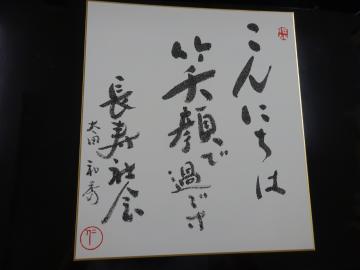 こんにちは
笑顔で過ごす
長寿社会
太田和秀